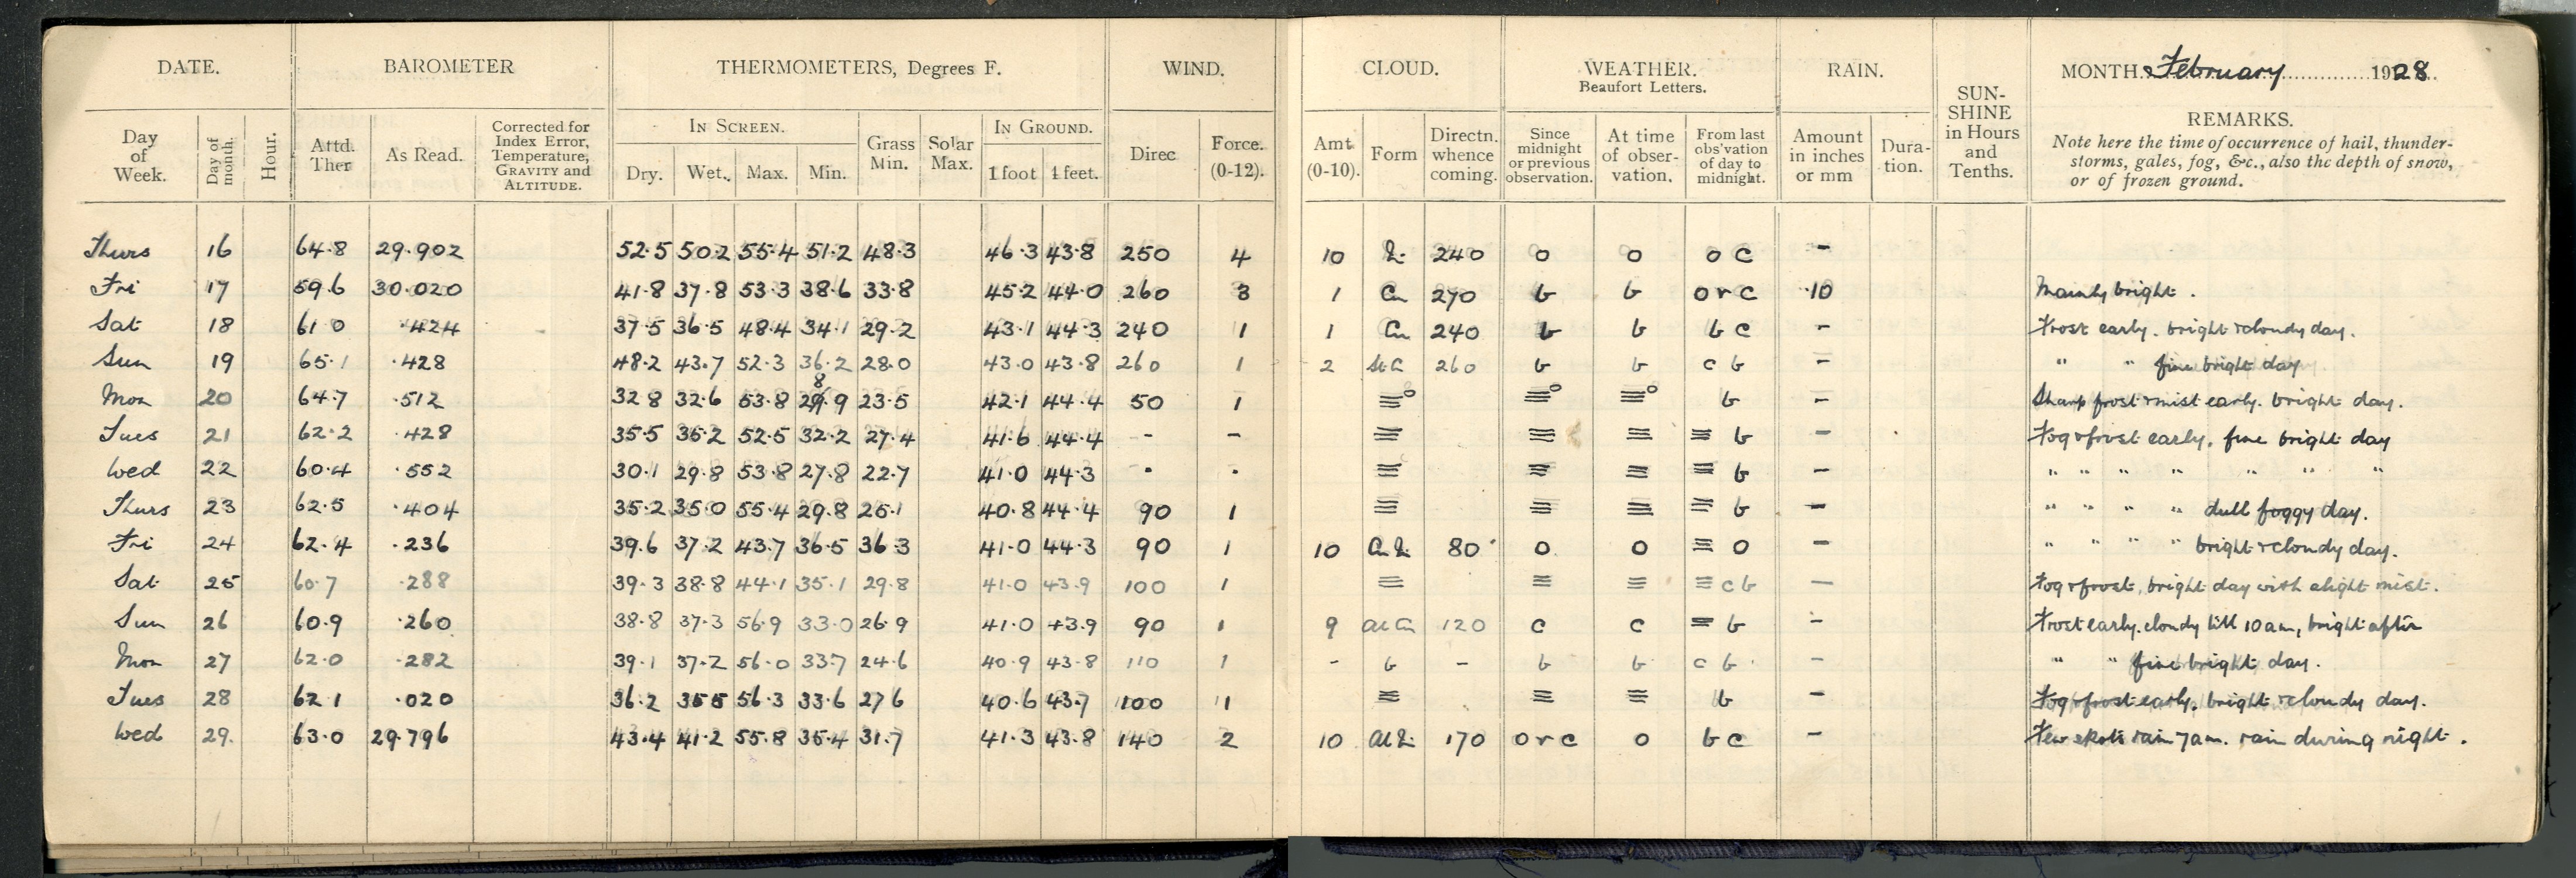 DATE. BAROMETER THERMOMETERS, Degrees F. WIND. CLOUD. WEATHER. Beaufort Letters. RAIN. SUN-SHINE in Hours and Tenths. MONTH. February 1928
REMARKS.
Note here the time of occurrence of hail, thunder-
storms, gales, fog, &c., also the depth of snow,
or of frozen ground.
IN SCREEN. IN GROUND.
Day of Week. Day of month. Hour. Attd. Ther As Read. Corrected for Index Error, Temperature, GRAVITY and ALTITUDE. Dry. Wet. Max. Min. Grass Min. Solar Max. 1 foot 4 feet. Direc Force. (0-12). Amt (0-10). Form Directn. whence coming. Since midnight or previous observation. At time of obser-vation. From last obs'vation of day to midnight. Amount in inches or mm Dura-tion.
Thurs 16 64.8 29.902 52.5 50.2 55.4 51.2 48.3 46.3 43.8 250 4 10 240 o o o c -
Fri 17 59.6 30.020 41.8 37.8 53.3 38.6 33.8 45.2 44.0 260 3 1 Cu 270 b b o r c .10 Mainly bright.
Sat 18 61.0 .424 37.5 36.5 48.4 34.1 29.2 43.1 44.3 240 1 1 Cu 240 b b b c - Frost early. bright & cloudy day.
Sun 19 65.1 .428 48.2 43.7 52.3 36.2 28.0 43.0 43.8 260 1 2 260 b b c b - " " fine bright day
Mon 20 64.7 .512 32.8 32.6 53.8 28.9 23.5 42.1 44.4 50 1 ≡° ≡° ≡° b - Sharp frost & mist early. bright day.
Tues 21 62.2 .428 35.5 35.2 52.5 32.2 27.4 41.6 44.4 - - ≡ ≡ ≡ ≡ b - Fog & frost early, fine bright day
Wed 22 60.4 .552 30.1 29.8 53.8 27.8 22.7 41.0 44.3 . . ≡ ≡ ≡ ≡ b - " " " " " " "
Thurs 23 62.5 .404 35.2 35.0 55.4 29.8 25.1 40.8 44.4 90 1 ≡ ≡ ≡ ≡ b - " " " " dull foggy day.
Fri 24 62.4 .236 39.6 37.2 43.7 36.5 36.3 41.0 44.3 90 1 10 80 o o ≡ o - " " " " bright & cloudy day.
Sat 25 60.7 .288 39.3 38.8 44.1 35.1 29.8 41.0 43.9 100 1 ≡ ≡ ≡ ≡ c b - Fog & frost, bright day with slight mist.
Sun 26 60.9 .260 38.8 37.3 56.9 33.0 26.9 41.0 43.9 90 1 9 120 c c = b - Frost early. cloudy till 10 am, bright after
Mon 27 62.0 .282 39.1 37.2 56.0 33.7 24.6 40.9 43.8 110 1 - b - b b c b - " " fine bright day.
Tues 28 62.1 .020 36.2 35.5 56.3 33.6 27.6 40.6 43.7 100 1 ≡ ≡ ≡ b - Fog & frost early, bright & cloudy day.
Wed 29. 63.0 29.796 43.4 41.2 55.8 35.4 31.7 41.3 43.8 140 2 10 170 o r c o b c - Few spots rain 7 am. rain during night.